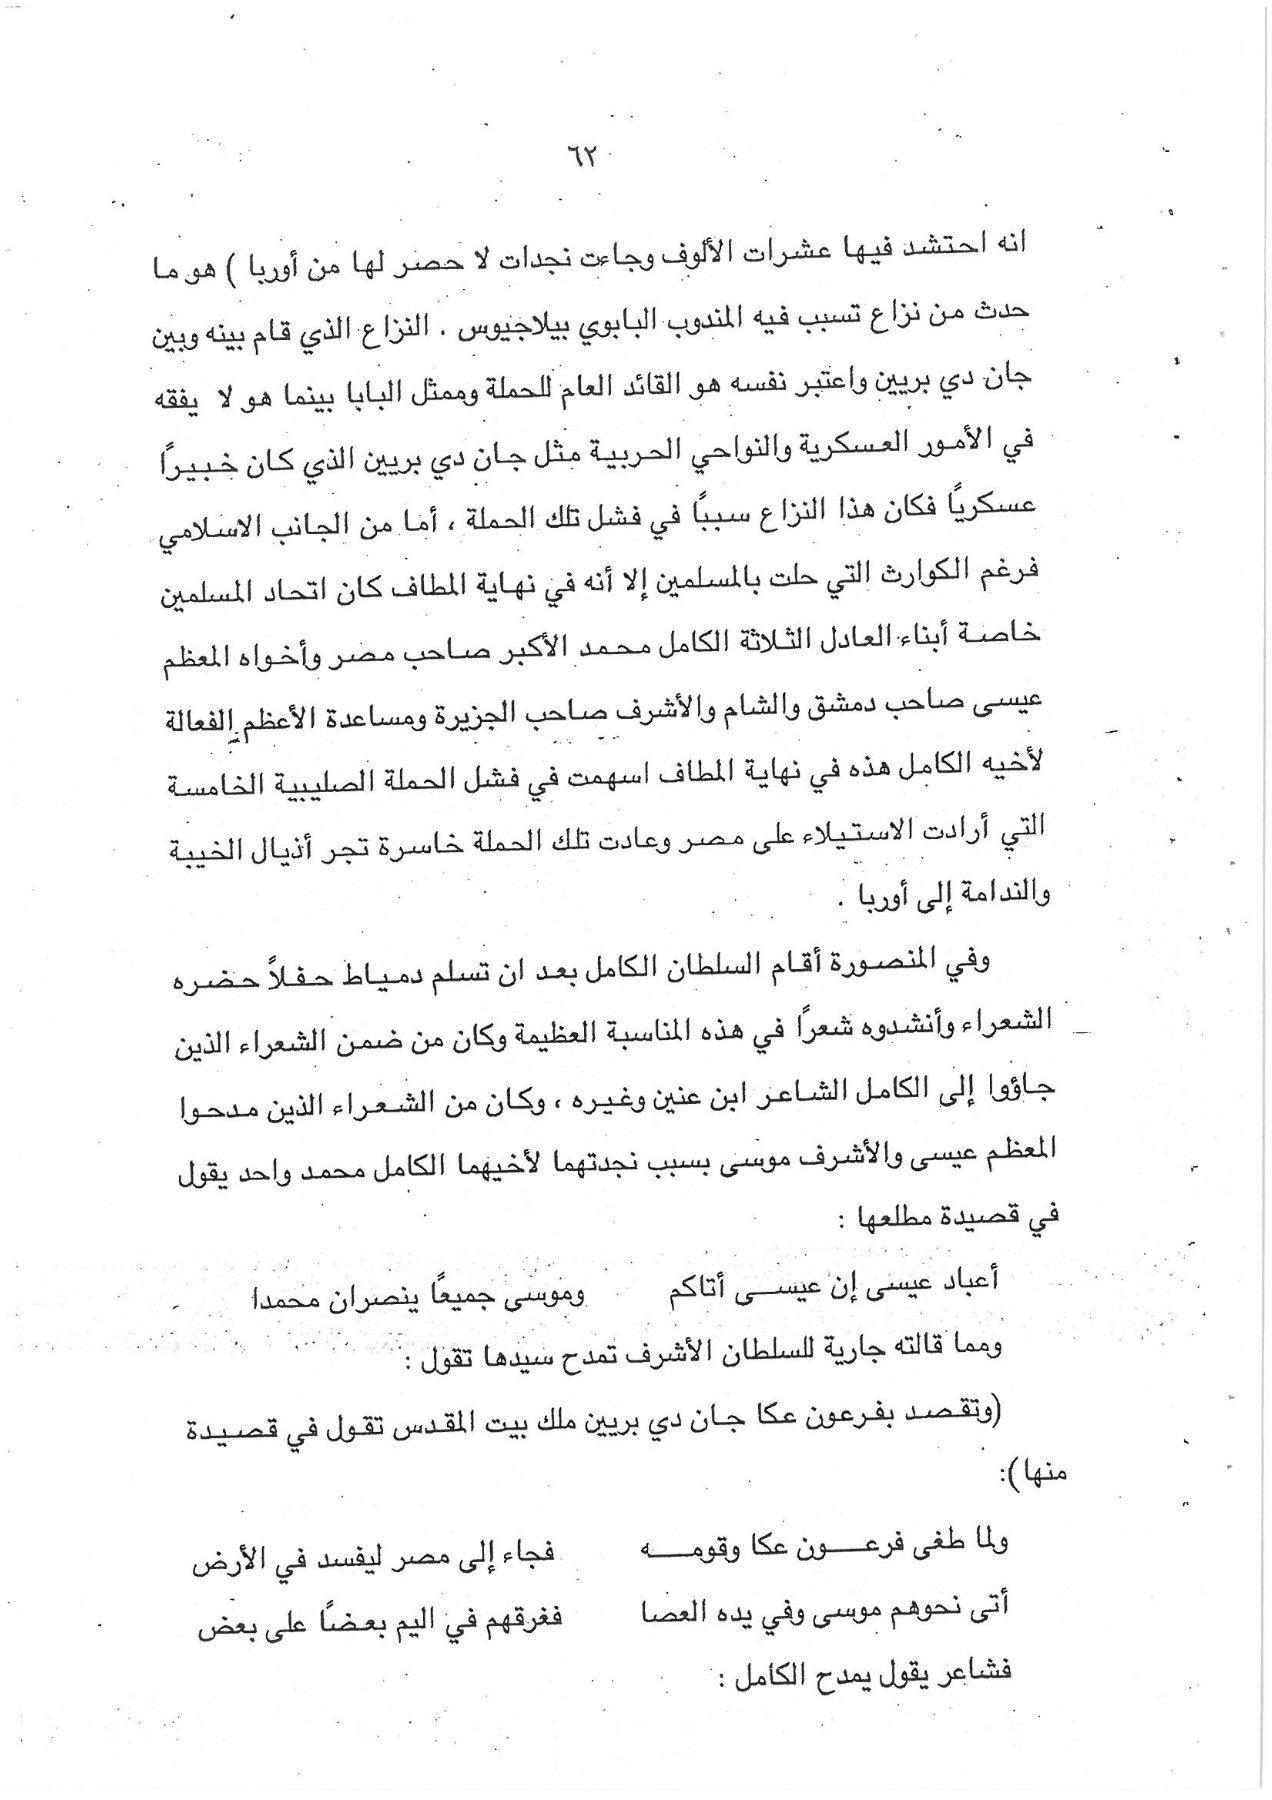 ٦٢
انه احتشد فيها عشرات الألوف وجاءت نجدات لا حصر لها من أوربا ) هو ما
حدث من نزاع تسبب فيه المندوب البابوي بيلاجيوس . النزاع الذي قام بينه وبين
جان دي بريين واعتبر نفسه هو القائد العام للحملة وممثل البابا بينما هو لا يفقه
في الأمور العسكرية والنواحي الحربية مثل جان دي بريين الذي كان خبيرًا
عسكريًا فكان هذا النزاع سببًا في فشل تلك الحملة ، أما من الجانب الاسلامي
فرغم الكوارث التي حلت بالمسلمين إلا أنه في نهاية المطاف كان اتحاد المسلمين
خاصة أبناء العادل الثلاثة الكامل محمد الأكبر صاحب مصر وأخواه المعظم
عيسى صاحب دمشق والشام والأشرف صاحب الجزيرة ومساعدة الأعظم الفعالة
لأخيه الكامل هذه في نهاية المطاف اسهمت في فشل الحملة الصليبية الخامسة
التي أرادت الاستيلاء على مصر وعادت تلك الحملة خاسرة تجر أذيال الخيبة
والندامة إلى أوربا .
وفي المنصورة أقام السلطان الكامل بعد ان تسلم دمياط حفلاً حضره
الشعراء وأنشدوه شعرًا في هذه المناسبة العظيمة وكان من ضمن الشعراء الذين
جاؤوا إلى الكامل الشاعر ابن عنين وغيره ، وكان من الشعراء الذين مدحوا
المعظم عيسى والأشرف موسى بسبب نجدتهما لأخيهما الكامل محمد واحد يقول
في قصيدة مطلعها :
أعباد عيسى إن عيســى أتاكم وموسى جميعًا ينصران محمدا
ومما قالته جارية للسلطان الأشرف تمدح سيدها تقول :
(وتقصد بفرعون عكا جان دي بريين ملك بيت المقدس تقول في قصيدة
منها):
ولما طغى فرعــــون عكا وقومــــه فجاء إلى مصر ليفسد في الأرض
أتى نحوهم موسى وفي يده العصا فغرقهم في اليم بعضًا على بعض
فشاعر يقول يمدح الكامل :